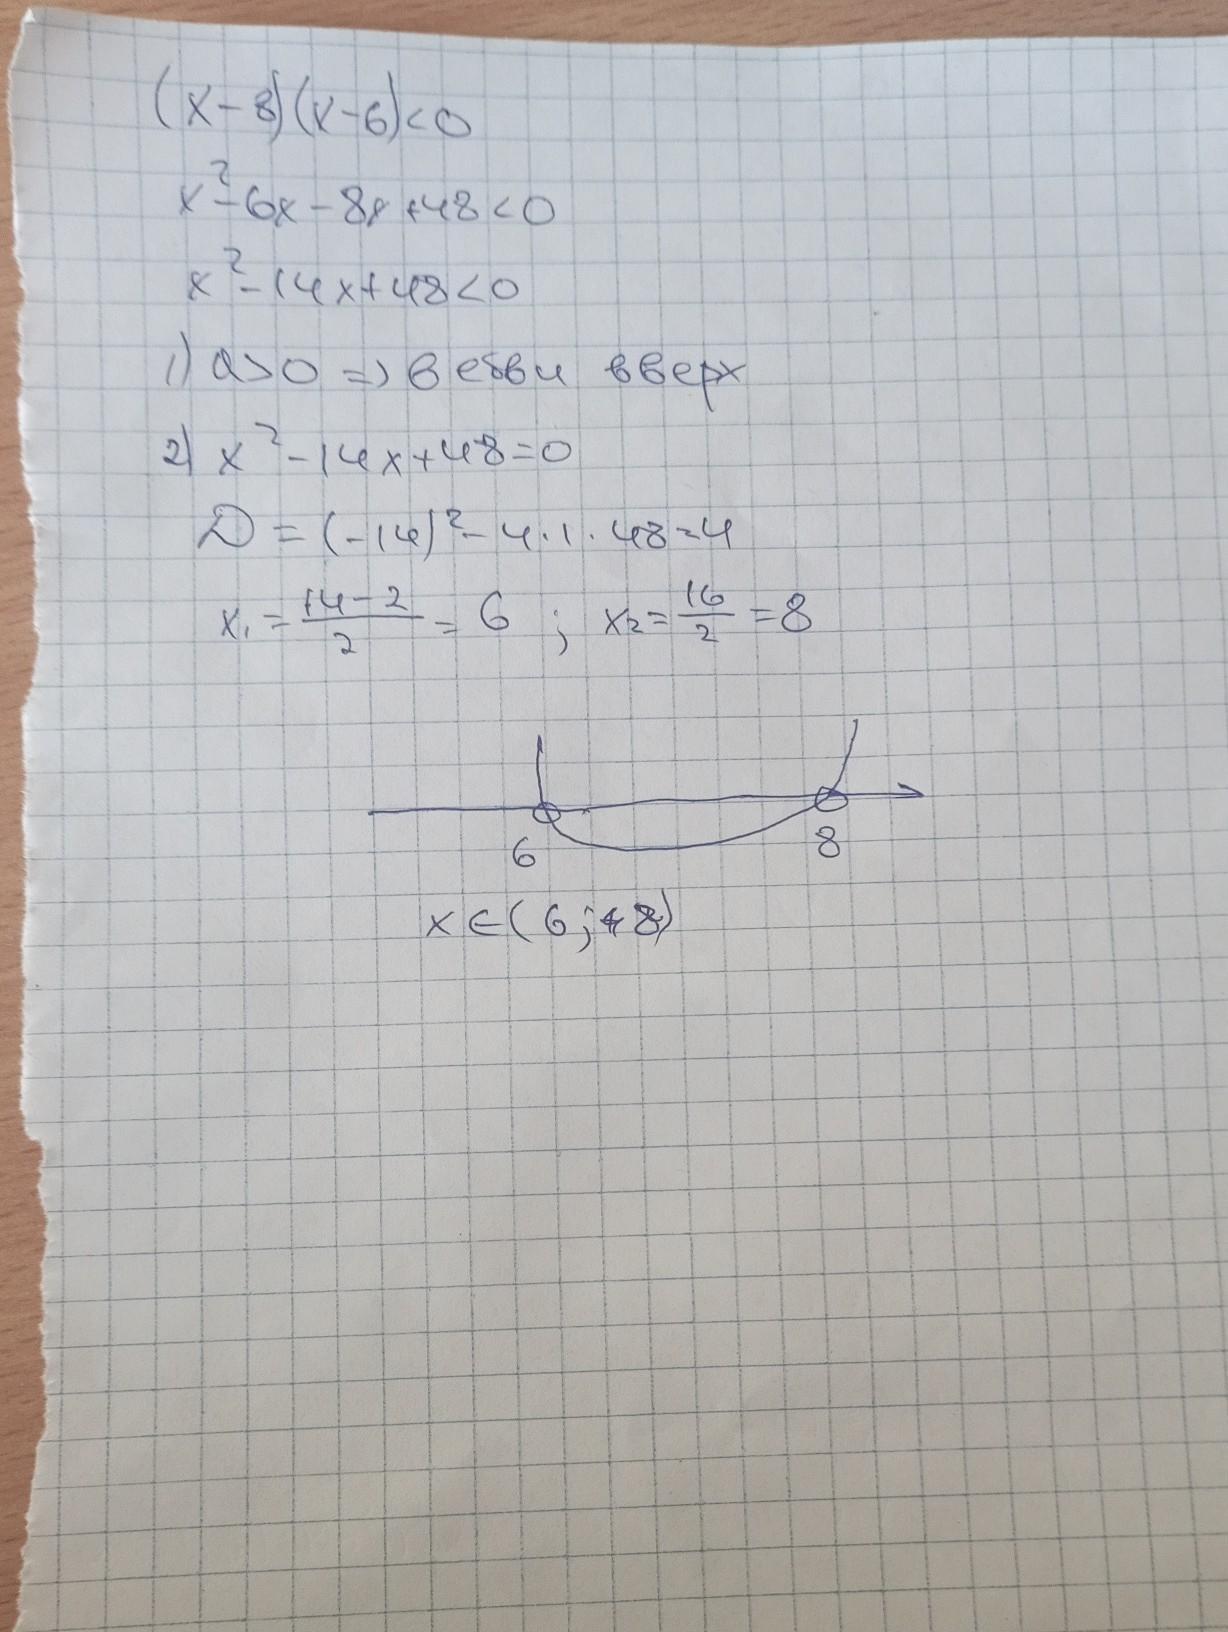 (x-8)(x-6)<0
x²-6x-8x+48<0
x²-14x+48<0
1) a>0 => ветви вверх
2) x²-14x+48=0
D=(-14)²-4·1·48=4
x₁=(14-2)/2=6 ; x₂=16/2=8
6 8
x∈(6;8)